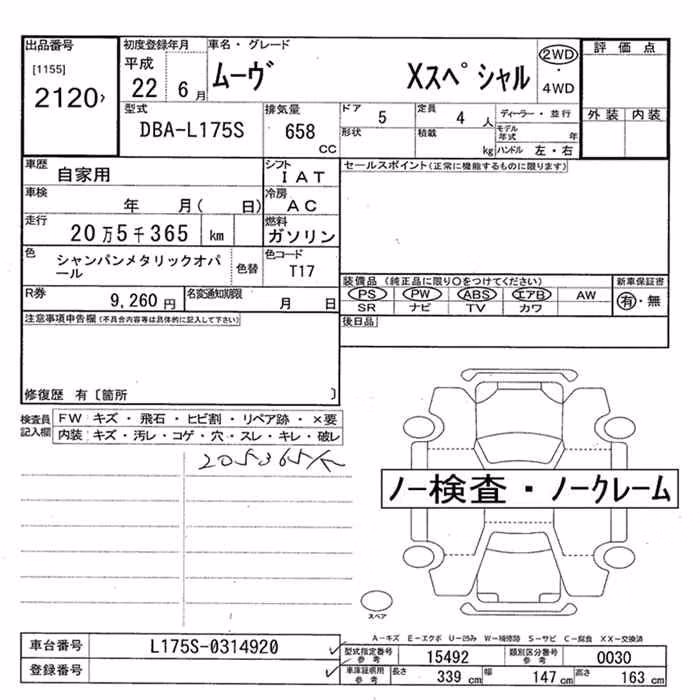 出品番号 初度登録年月 車名・グレード 評価点
[1155] 平成 2WD
2120 22 6月 ムーヴ Xスペシャル ・
4WD
型式 排気量 ドア 5 定員 4人 ディーラー・並行 外装 内装
DBA-L175S 658cc 形状 積載 kg モデル年式 年
ハンドル 左・右
車歴 自家用 シフト IAT セールスポイント(正常に機能するものに限ります)
車検 年 月( 日) 冷房 AC
走行 20万5千365 km 燃料 ガソリン
色 シャンパンメタリックオパール 色替 色コード T17
装備品(純正品に限り○をつけてください) 新車保証書
R券 9,260円 名変通知期限 月 日 PS PW ABS エアB AW 有・無
SR ナビ TV カワ
注意事項申告欄(不具合内容等は具体的に記入して下さい) 後日品
修復歴 有〔箇所 〕
検査員記入欄 FW キズ・飛石・ヒビ割・リペア跡・×要
内装 キズ・汚レ・コゲ・穴・スレ・キレ・破レ
205365K
ノー検査・ノークレーム
スペア
A−キズ E−エクボ U−凹み W−補修跡 S−サビ C−腐食 XX−交換済
車台番号 L175S-0314920 型式指定番号参考 15492 類別区分番号参考 0030
登録番号 車庫証明用参考 長さ 339cm 幅 147cm 高さ 163cm